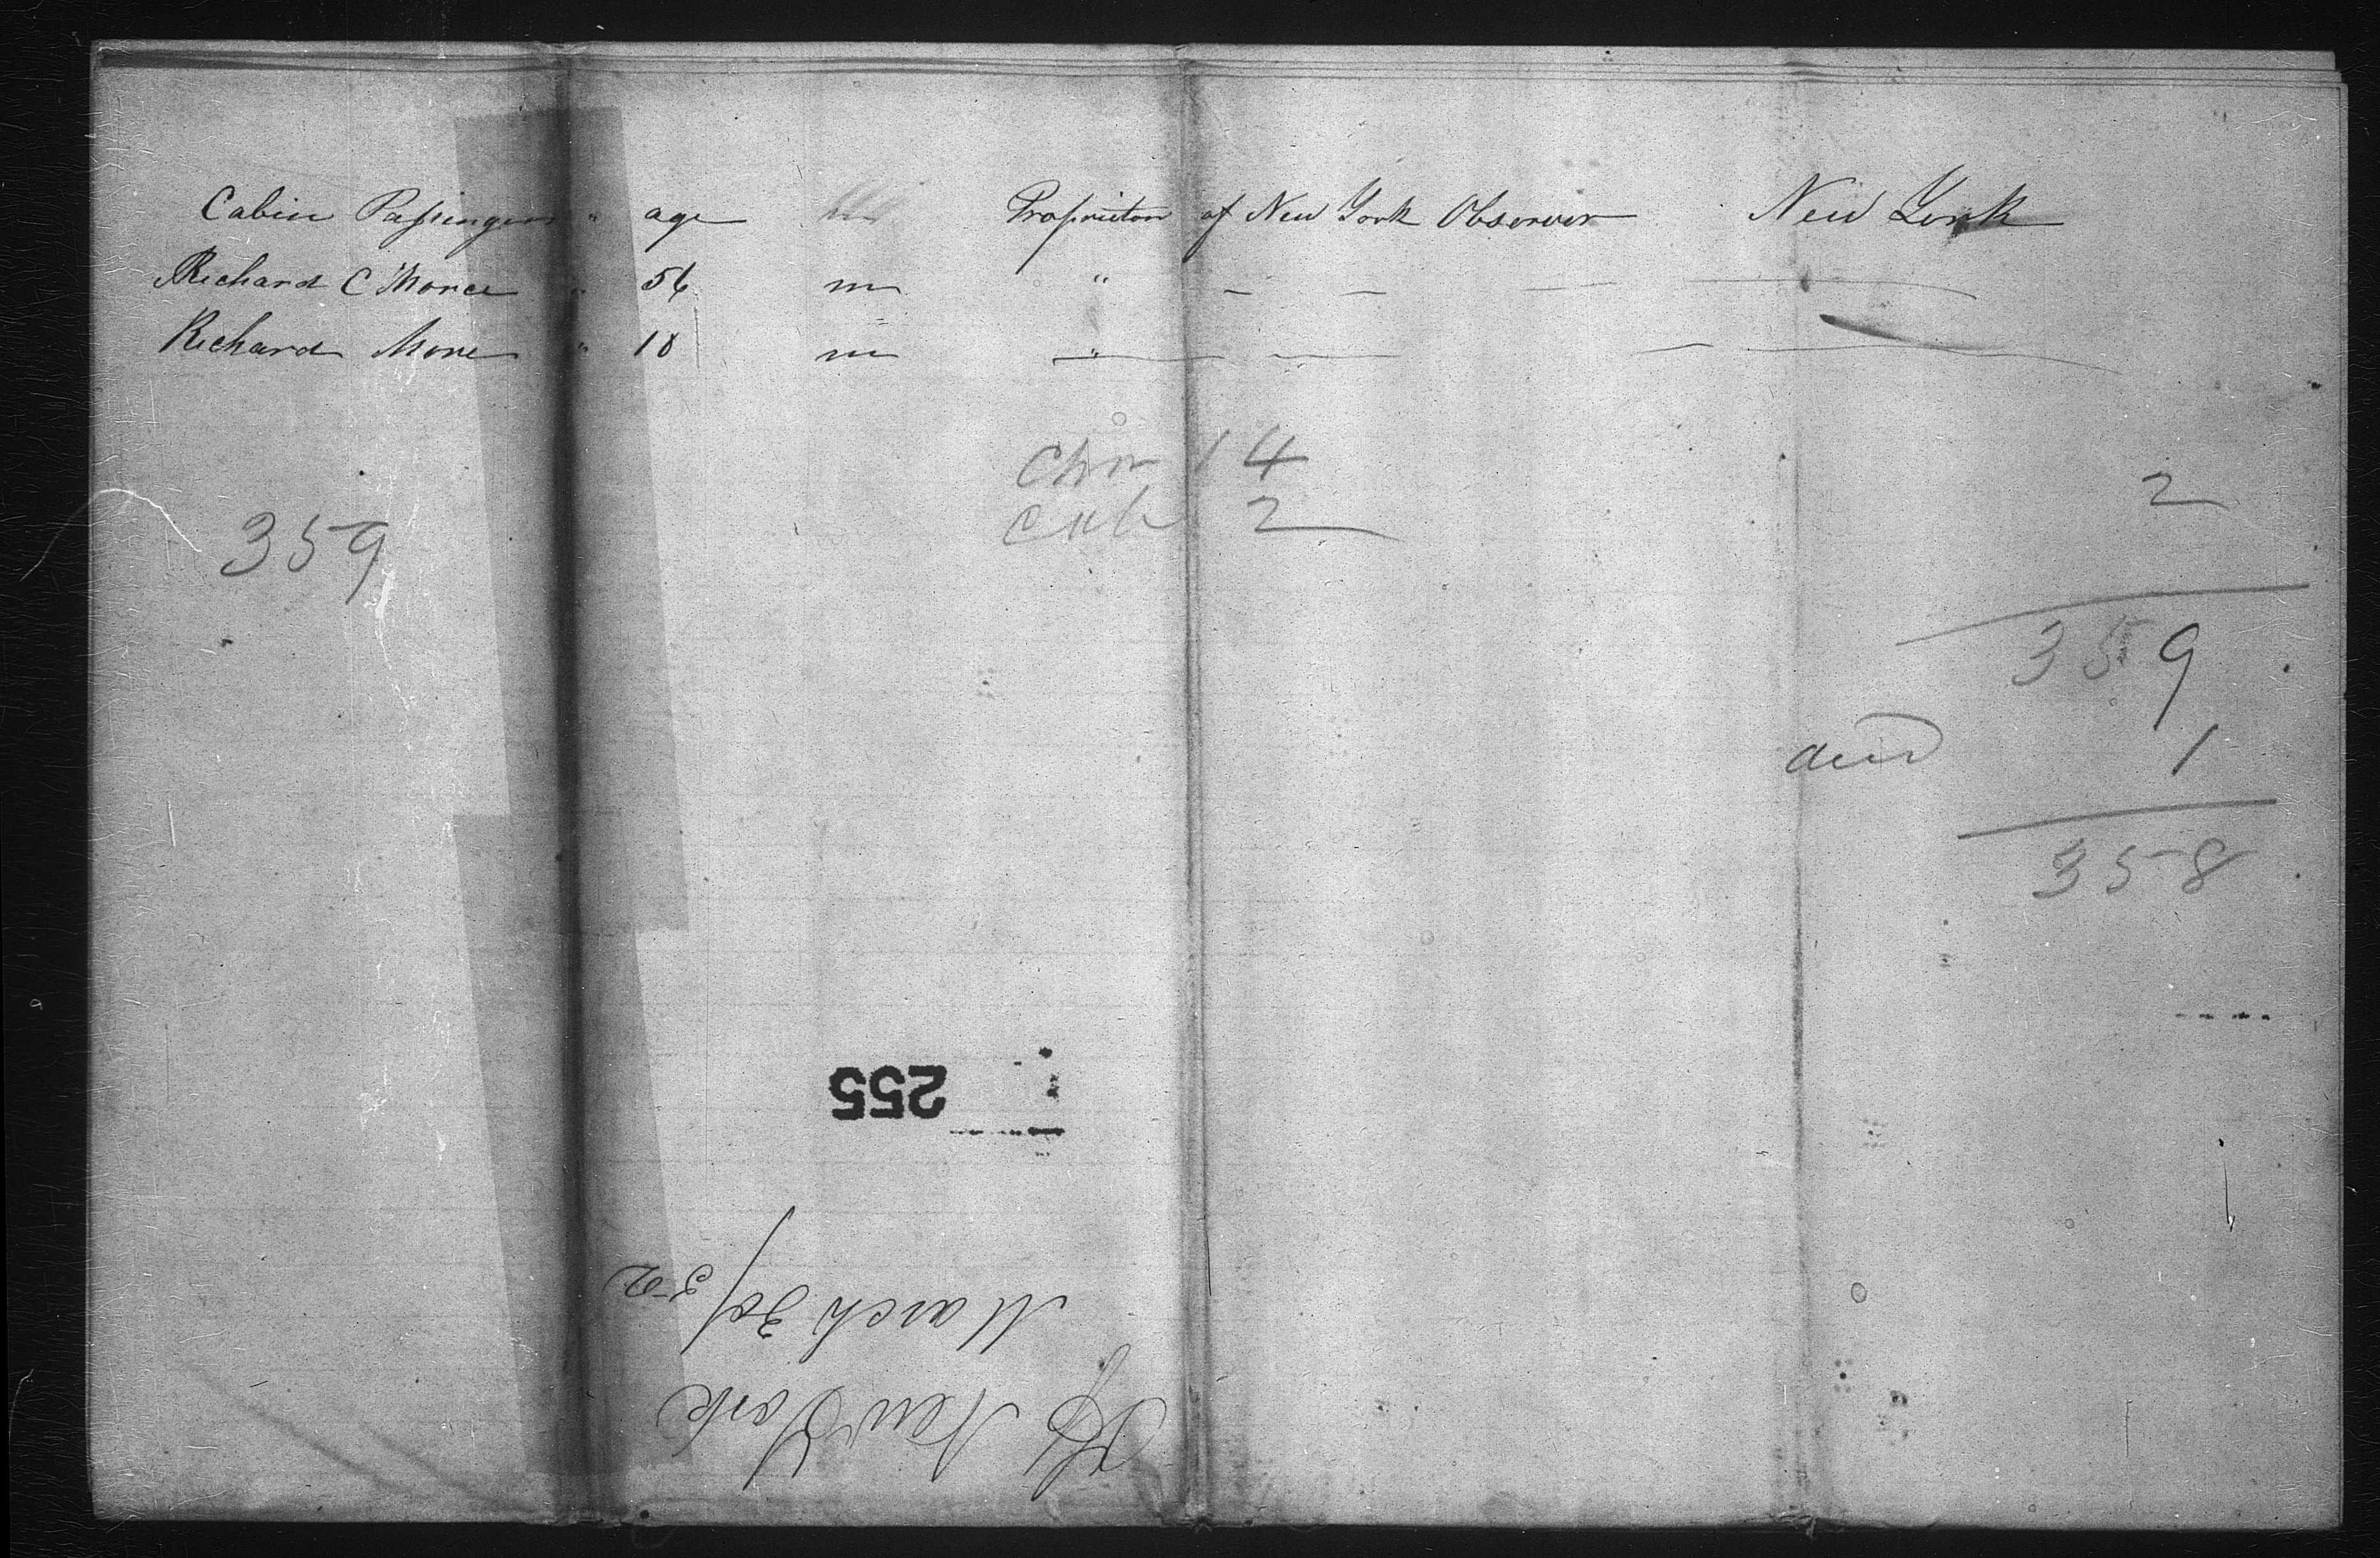 Cabin Passengers " age Proprietor of New York Observer New York
Richard C Morce " 56 m "
Richard Morce " 18 m "
Chm 14
Cab 2
2
359
359
1
358
255
Sh New York
March 30/52